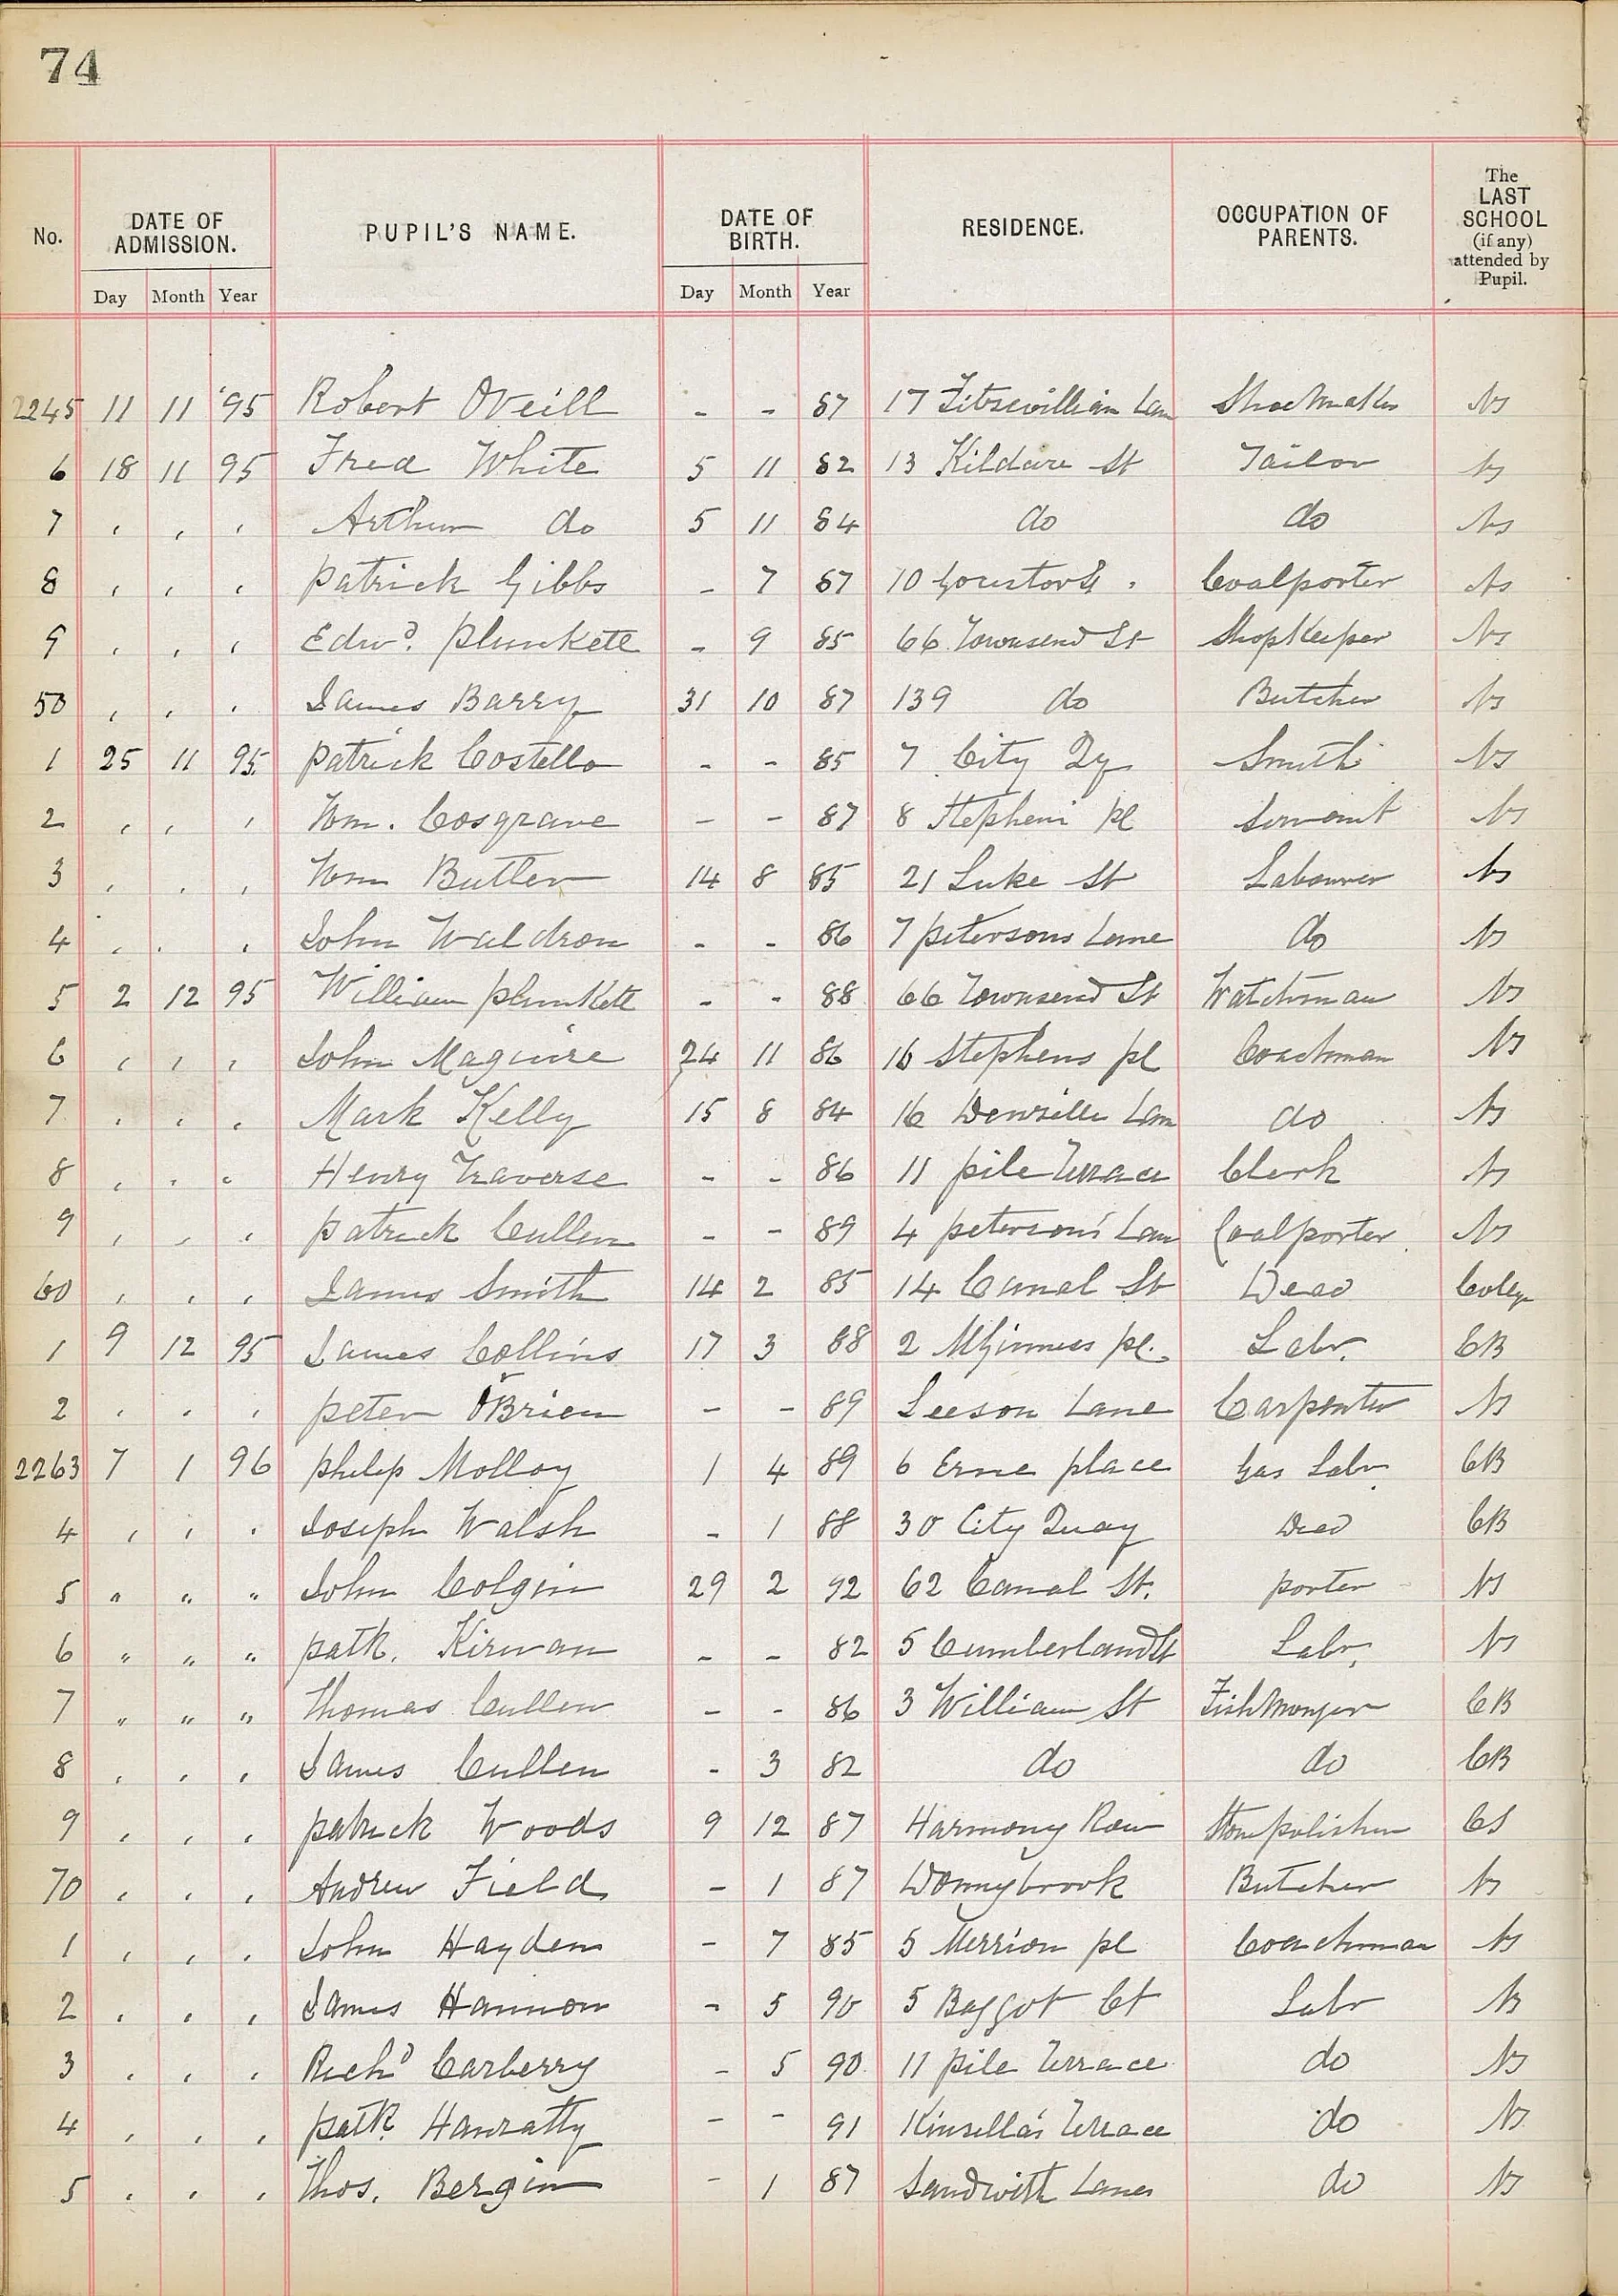 74
No. DATE OF ADMISSION. PUPIL'S NAME. DATE OF BIRTH. RESIDENCE. OCCUPATION OF PARENTS. The LAST SCHOOL (if any) attended by Pupil.
Day Month Year Day Month Year
2245 11 11 '95 Robert O'Neill - - 87 17 Fitzwilliam Lan Shoemaker NS
6 18 11 95 Fred White 5 11 82 13 Kildare St Tailor NS
7 , , , Arthur do 5 11 84 do do NS
8 , , , Patrick Gibbs - 7 87 10 Coalporter NS
9 , , , Edwd. Plunkett - 9 85 66 Townsend St Shopkeeper NS
50 , , , James Barry 31 10 87 139 do Butcher NS
1 25 11 95 Patrick Costello - - 85 7 City Qy Smith NS
2 , , , Wm. Cosgrave - - 87 8 Stephens pl Servant NS
3 , , , Wm Butler 14 8 85 21 Luke St Labourer NS
4 , , , John Waldron - - 86 7 Petersons Lane do NS
5 2 12 95 William Plunkett - - 88 66 Townsend St Watchman NS
6 , , , John Maguire 24 11 86 16 Stephens pl Coachman NS
7 , , , Mark Kelly 15 8 84 16 Denzille Lan do NS
8 , , , Henry Traverse - - 86 11 Pile Terrace Clerk NS
9 , , , Patrick Cullen - - 89 4 Peterson's Lan Coalporter NS
60 , , , James Smith 14 2 85 14 Canal St Dead
1 9 12 95 James Collins 17 3 88 2 McGinness pl. Labr. CB
2 , , , Peter O'Brien - - 89 Leeson Lane Carpenter NS
2263 7 1 96 Philip Molloy 1 4 89 6 Erne place Gas Labr. CB
4 , , , Joseph Walsh - 1 88 30 City Quay Dead CB
5 " " " John Colgin 29 2 92 62 Canal St. porter NS
6 " " " Patk. Kirwan - - 82 5 Cumberland St Labr. NS
7 " " " Thomas Cullen - - 86 3 William St Fishmonger CB
8 , , , James Cullen - 3 82 do do CB
9 , , , Patrick Woods 9 12 87 Harmony Row Stonepolisher CS
70 , , , Andrew Field - 1 87 Donnybrook Butcher NS
1 , , , John Hayden - 7 85 5 Merrion pl Coachman NS
2 , , , James Hannon - 5 90 5 Baggot Ct Labr NS
3 , , , Richd Carberry - 5 90 11 Pile Terrace do NS
4 , , , Patk. Hanratty - - 91 Kinsella's Terrace do NS
5 , , , Thos. Bergin - 1 87 Sandwith Lane do NS